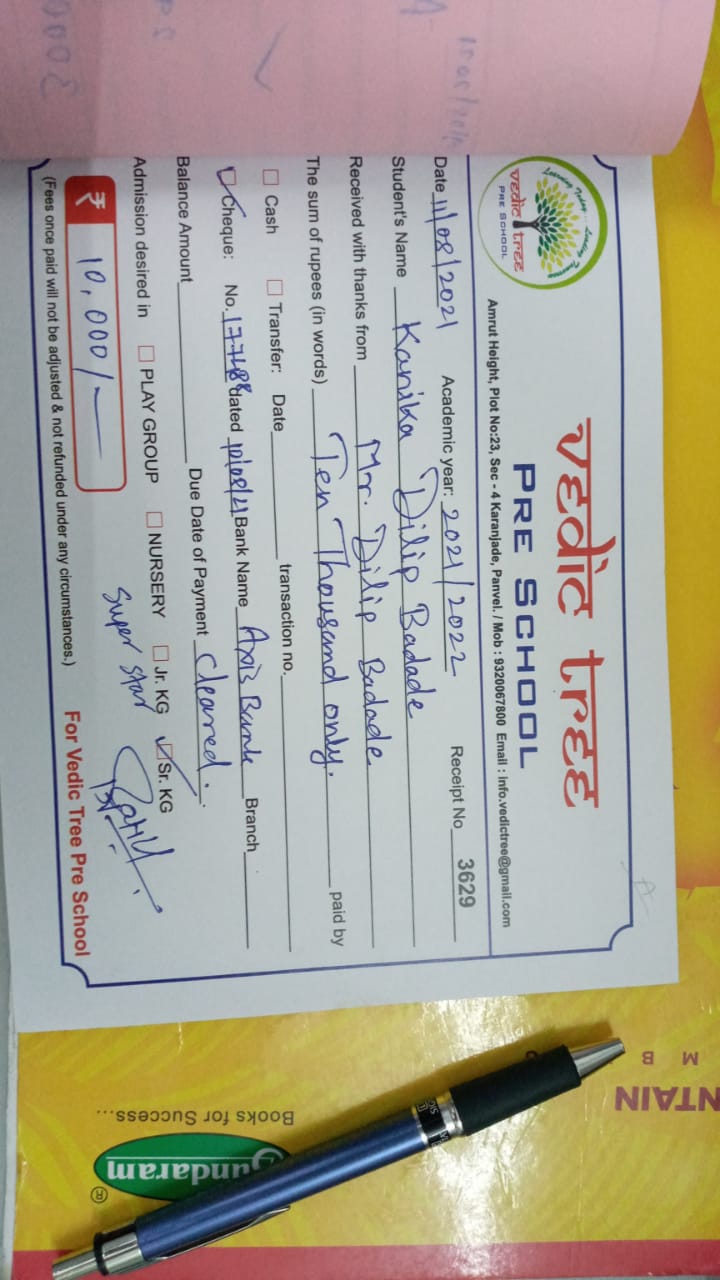 Learning Today... Leading Tomorrow
vedic tree
PRE SCHOOL
vedic tree
PRE SCHOOL
Amrut Height, Plot No:23, Sec - 4 Karanjade, Panvel. / Mob : 9320067800 Email : info.vedictree@gmail.com
Date 11/08/2021 Academic year: 2021/2022 Receipt No 3629
Student's Name Kanika Dilip Badade
Received with thanks from Mr. Dilip Badade
The sum of rupees (in words) Ten Thousand only. paid by
Cash Transfer: Date transaction no.
Cheque: No. 177488 dated 10/08/21 Bank Name Axis Bank Branch
Balance Amount Due Date of Payment Cleared.
Admission desired in PLAY GROUP NURSERY Jr. KG Sr. KG
Super Star
₹ 10,000/-
(Fees once paid will not be adjusted & not refunded under any circumstances.)
For Vedic Tree Pre School
Books for Success...
Sundaram
®
NTAIN
M B